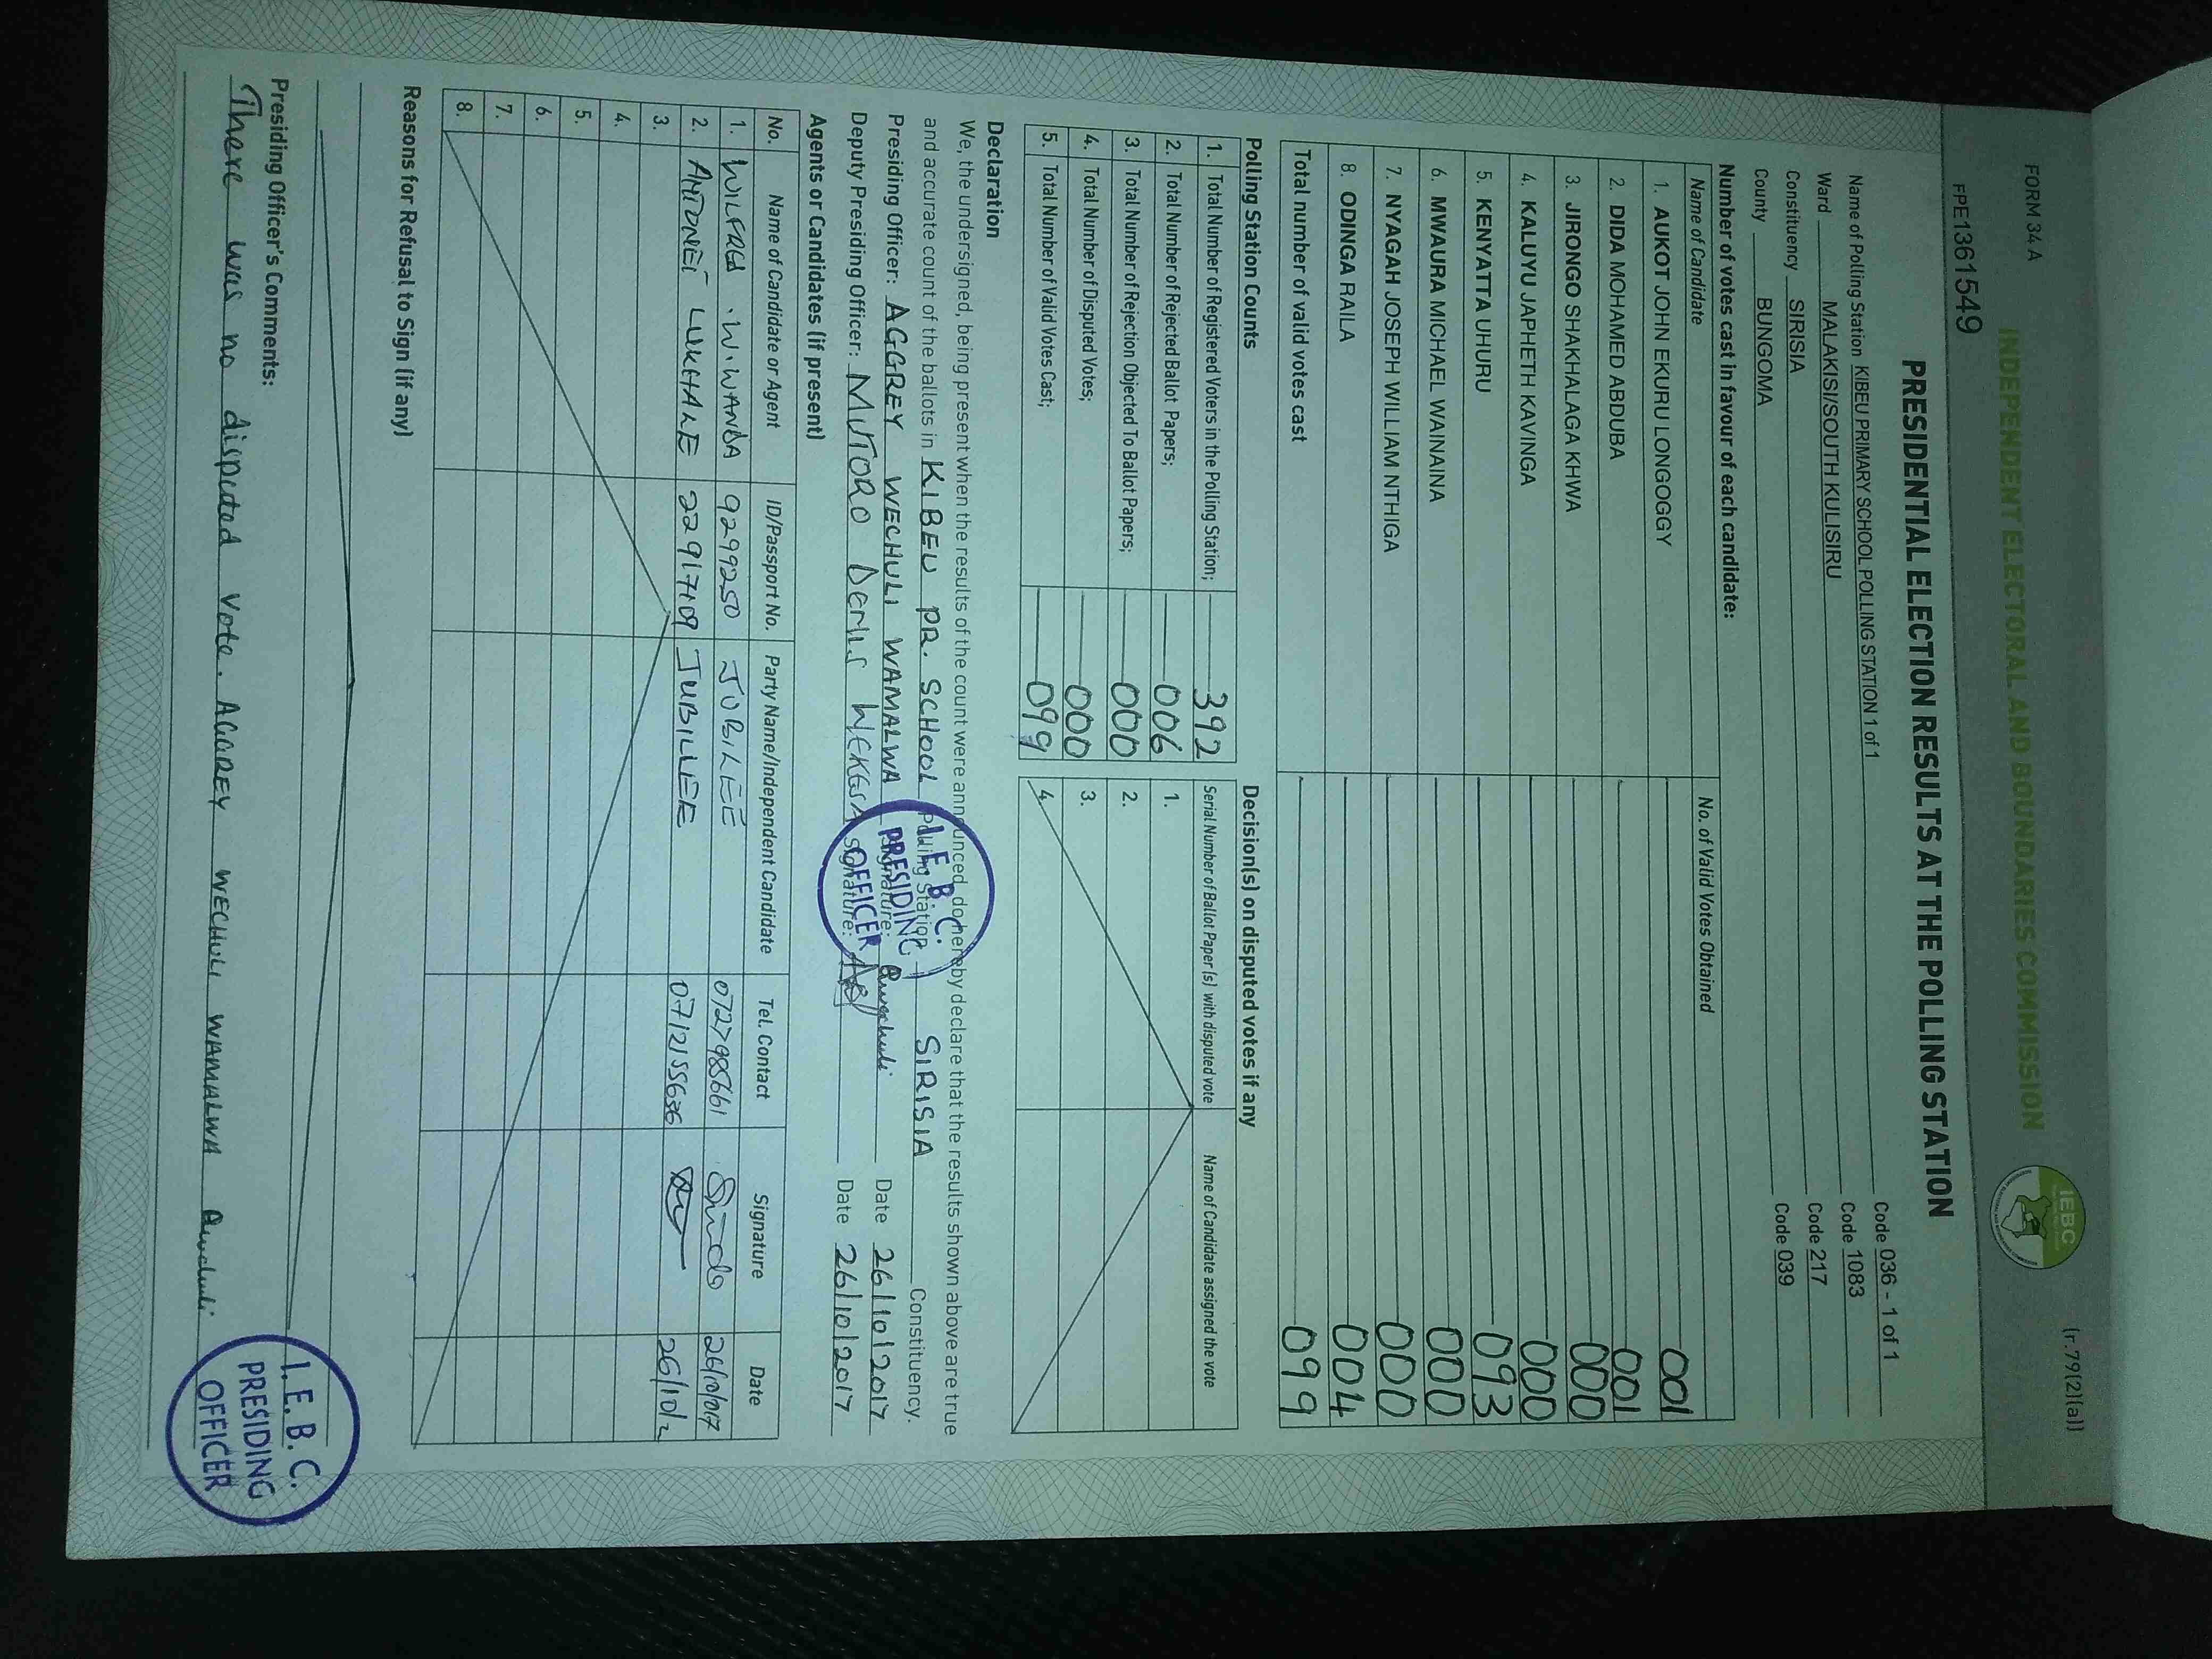 FORM 34 A
(r.79(2)(a))
INDEPENDENT ELECTORAL AND BOUNDARIES COMMISSION
IEBC
FPE1361549
PRESIDENTIAL ELECTION RESULTS AT THE POLLING STATION
Name of Polling Station KIBEU PRIMARY SCHOOL POLLING STATION 1 of 1 Code 036 - 1 of 1
Ward MALAKISI/SOUTH KULISIRU Code 1083
Constituency SIRISIA Code 217
County BUNGOMA Code 039
Number of votes cast in favour of each candidate:
Name of Candidate No. of Valid Votes Obtained
1. AUKOT JOHN EKURU LONGOGGY 001
2. DIDA MOHAMED ABDUBA 001
3. JIRONGO SHAKHALAGA KHWA 000
4. KALUYU JAPHETH KAVINGA 000
5. KENYATTA UHURU 093
6. MWAURA MICHAEL WAINAINA 000
7. NYAGAH JOSEPH WILLIAM NTHIGA 000
8. ODINGA RAILA 004
Total number of valid votes cast 099
Polling Station Counts
1. Total Number of Registered Voters in the Polling Station; 392
2. Total Number of Rejected Ballot Papers; 006
3. Total Number of Rejection Objected To Ballot Papers; 000
4. Total Number of Disputed Votes; 000
5. Total Number of Valid Votes Cast; 099
Decision(s) on disputed votes if any
Serial Number of Ballot Paper (s) with disputed vote Name of Candidate assigned the vote
1.
2.
3.
4.
Declaration
We, the undersigned, being present when the results of the count were announced, do hereby declare that the results shown above are true
and accurate count of the ballots in KIBEU PR. SCHOOL Polling Station SIRISIA Constituency.
Presiding Officer: AGGREY WECHULI WAMALWA Signature: Date 26/10/2017
Deputy Presiding Officer: MUTORO DENIS WEKESA Signature: Date 26/10/2017
I.E.B.C.
PRESIDING
OFFICER
Agents or Candidates (if present)
No. Name of Candidate or Agent ID/Passport No. Party Name/Independent Candidate Tel. Contact Signature Date
1. W.WANBA 9299250 JUBILEE 26/10/017
2. 22917109 JUBILLEE
3.
4.
5.
6.
7.
8.
Reasons for Refusal to Sign (if any)
Presiding Officer's Comments:
There was no disputed vote. AGGREY WECHULI WAMALWA
I.E.B.C.
PRESIDING
OFFICER